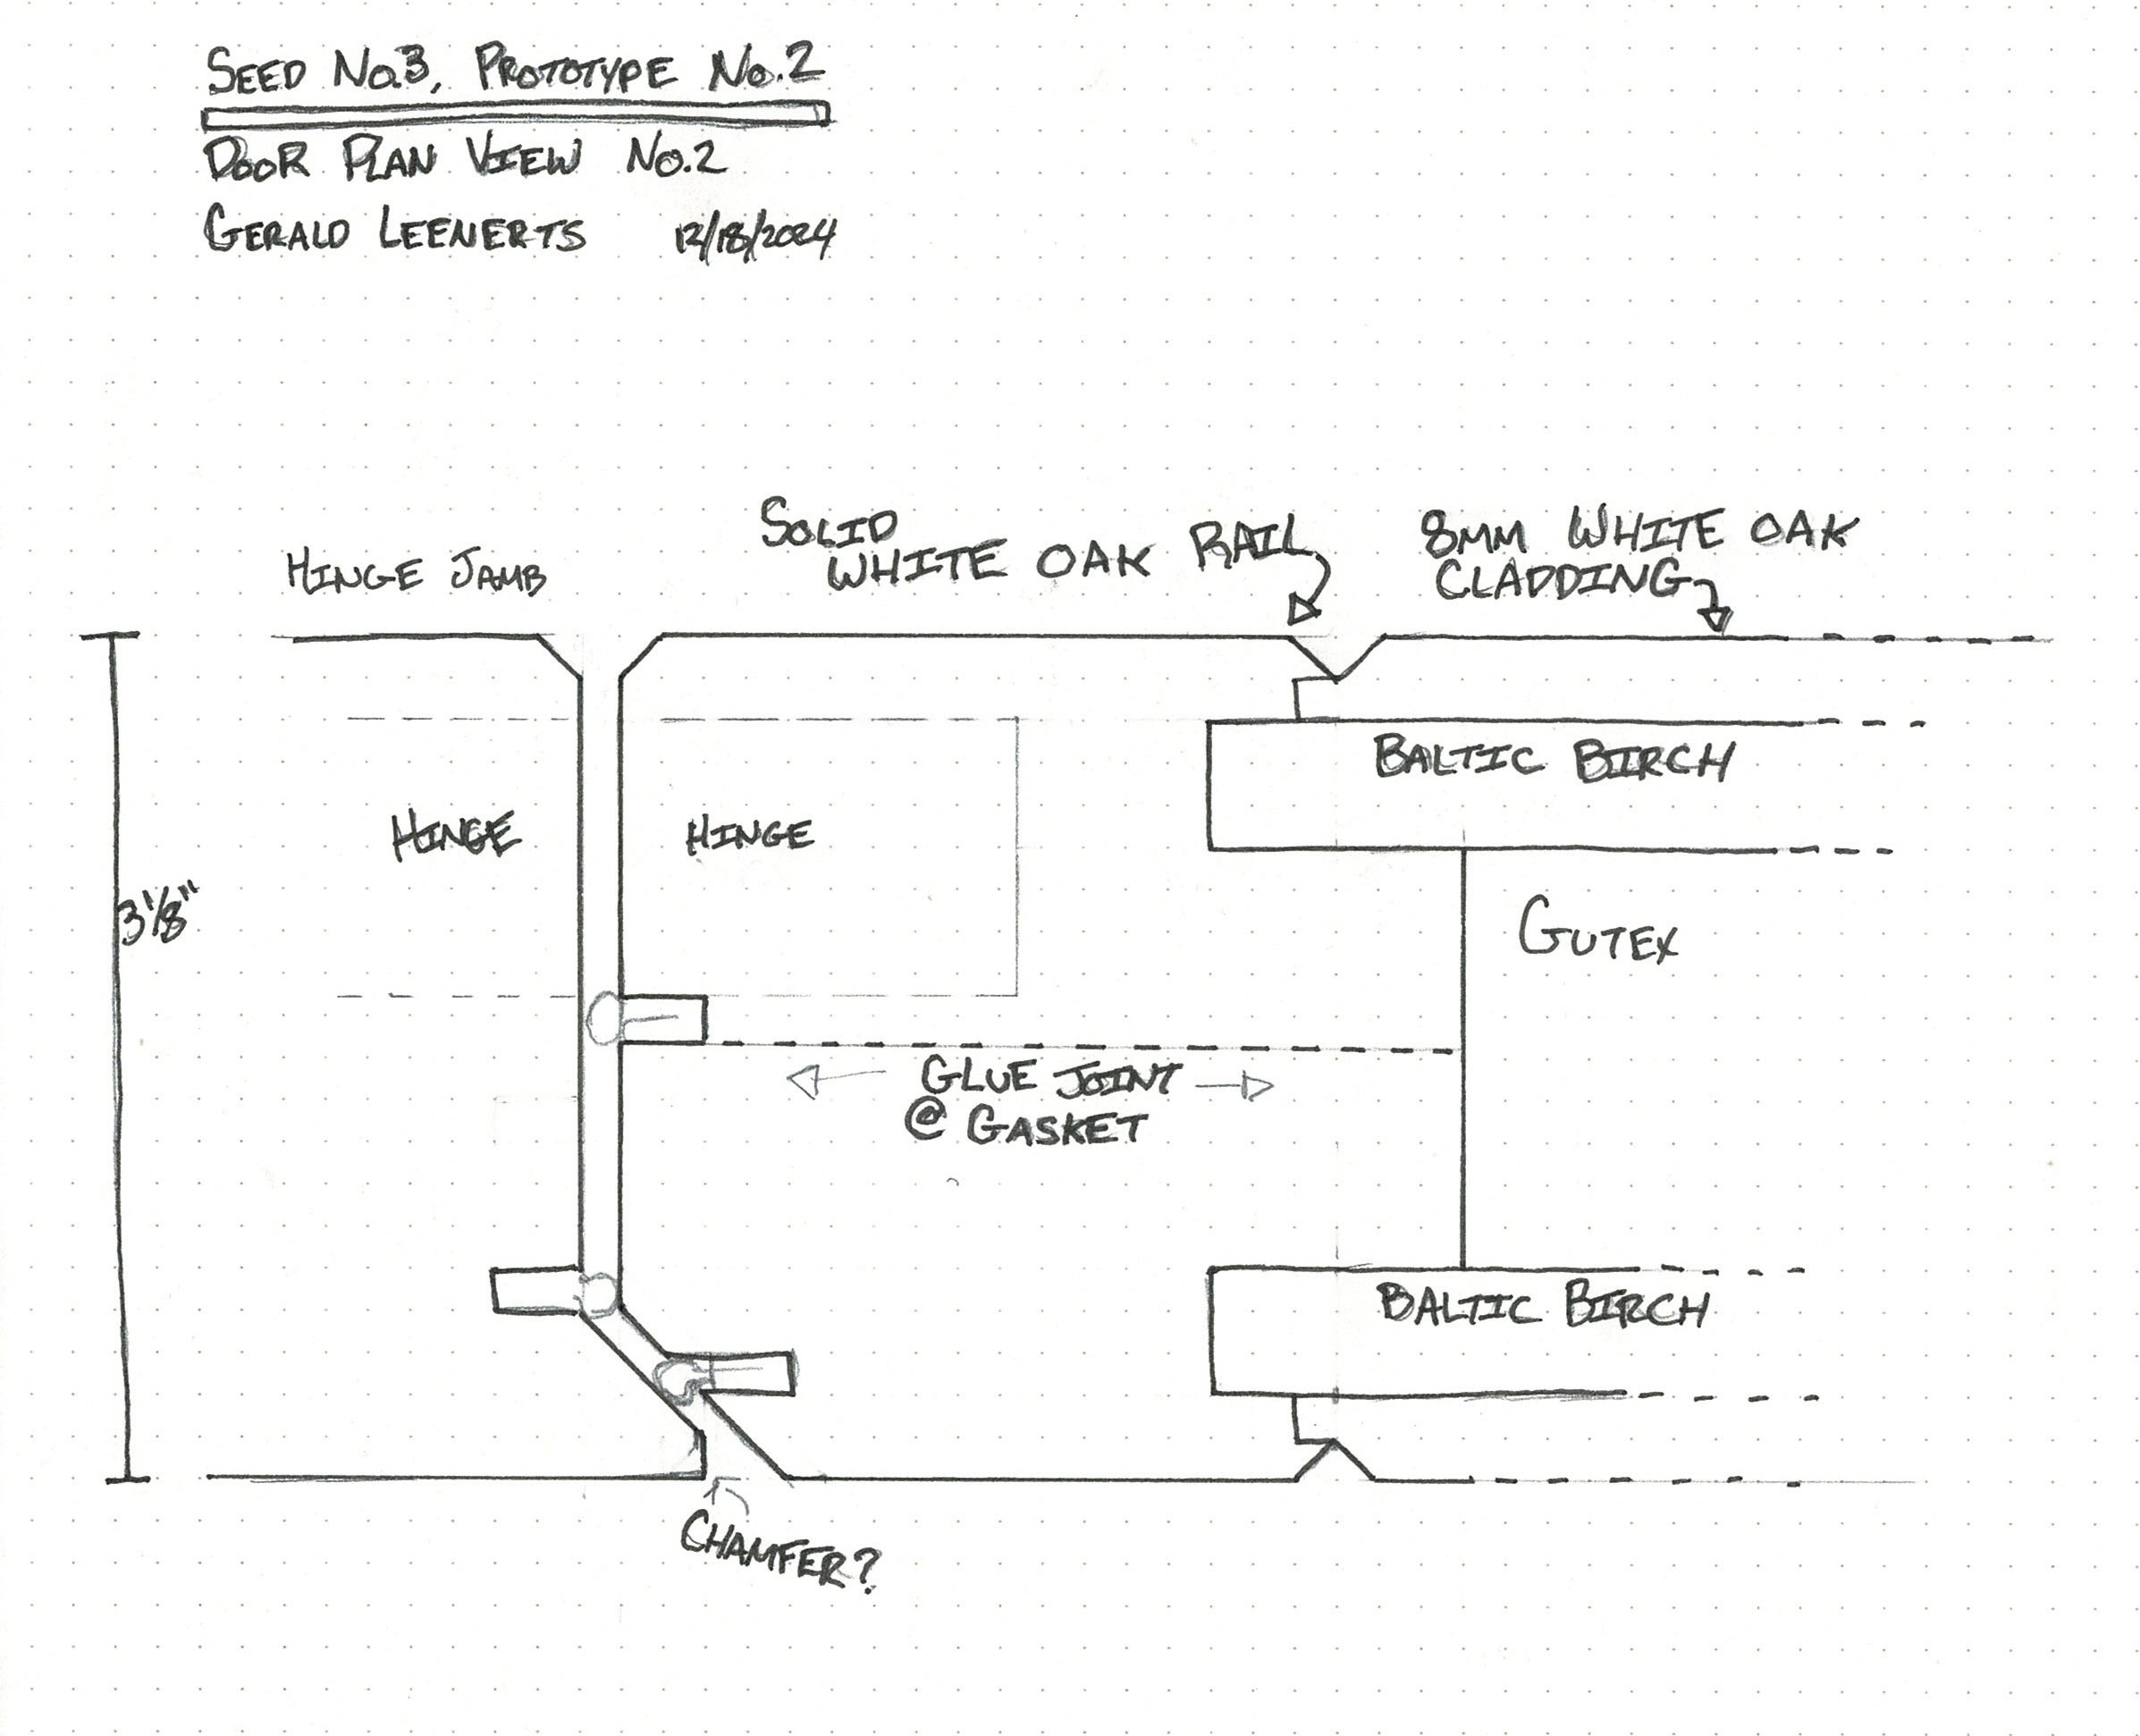 SEED No.3, PROTOTYPE No.2
DOOR PLAN VIEW No.2
GERALD LEENERTS 12/18/2024
SOLID
WHITE OAK RAIL
8MM WHITE OAK
CLADDING
HINGE JAMB
BALTIC BIRCH
HINGE
HINGE
3 1/8"
GUTEX
GLUE JOINT
@ GASKET
BALTIC BIRCH
CHAMFER?